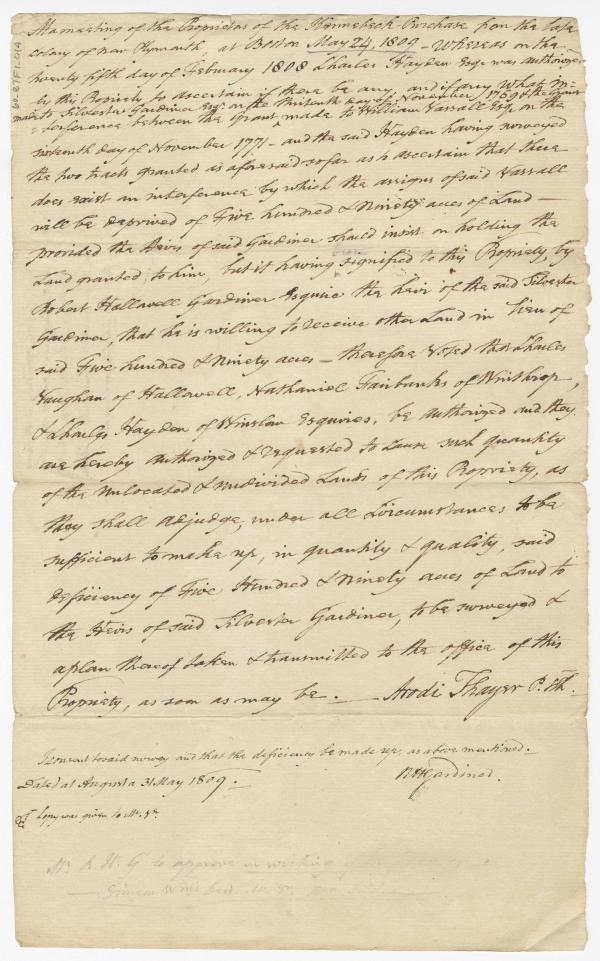 At a meeting of the Proprietors of the Kennebeck Purchase from the late
colony of new Plymouth, at Boston May 24, 1809 - Whereas on the
twenty fifth day of February 1808 Charles Hayden Esqr was authorized
by this Propriety to ascertain if there be any, and if any What in-
made to Silvester Gardiner Esqr on the day of November 1769 & the Grant
=terference between the Grant made to William Vassall Esqr on the
sixteenth day of November 1771 - and the said Hayden having surveyed
the two tracts granted as aforesaid so far as to ascertain that there
does exist an interference by which the assigns of said Vassall
will be deprived of Five hundred & Ninety acres of Land -
provided the Heirs of said Gardiner should insist on holding the
Land granted to him, but it having signified to this Propriety by
Robert Hallowell Gardiner Esquire the heir of the said Silvester
Gardiner, that he is willing to receive other Land in lieu of
said Five hundred & Ninety acres - therefore Voted that Charles
Vaughan of Hallowell, Nathaniel Fairbanks of Winthrop,
& Charles Hayden of Winslow Esquires, be authorized and they
are hereby authorized & requested to cause such quantity
of the unlocated & undivided Lands of this Propriety, as
they shall adjudge, under all Circumstances to be
sufficient to make up, in quantity & quality, said
deficiency of Five Hundred & Ninety acres of Land to
the Heirs of said Silvester Gardiner, to be surveyed &
a plan thereof taken & transmitted to the office of this
Propriety, as soon as may be. - Arodi Thayer P. Clk
I consent to said survey and that the deficiency be made up, as above mentioned.
Dated at Augusta 31 May 1809. R H Gardiner.
Copy was given to Mr.
Mr. R H G to approve in writing